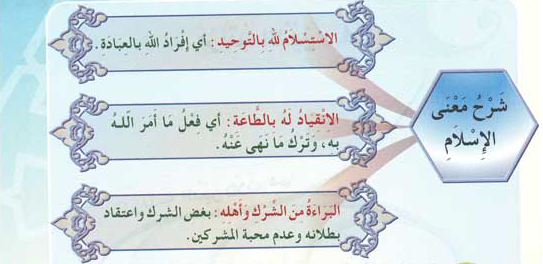 شَرْحُ مَعْنَى
الإِسْلَامِ
الاسْتِسْلَامُ للهِ بِالتَّوْحِيدِ : أي إِفْرَادُ اللهِ بالعِبَادَةِ .
الانْقِيَادُ لَهُ بِالطَّاعَة : أي فِعْلُ مَا أَمَرَ اللهُ
بِه، وَتَرْكُ مَا نَهَى عَنْهُ .
البَرَاءَةُ مِنَ الشِّرْكِ وَأَهْلِهِ : بغض الشرك واعتقاد
بطلانه وعدم محبة المشركين .